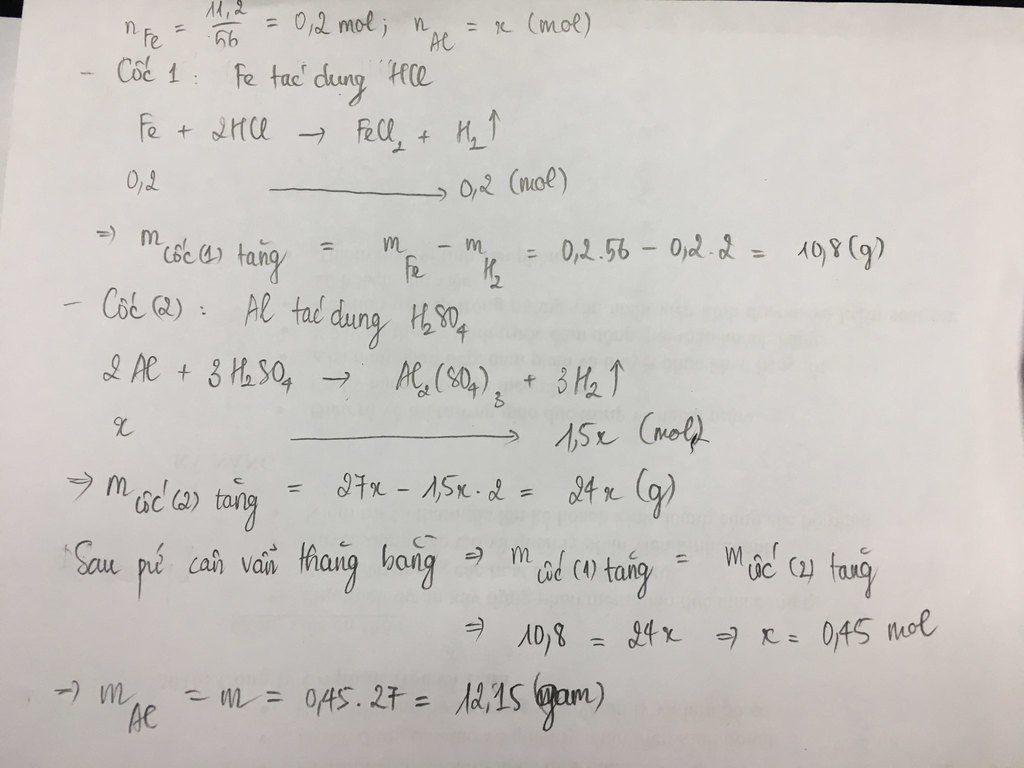 n_Fe = 11,2/56 = 0,2 mol; n_Al = x (mol)
- Cốc 1: Fe tác dụng HCl
Fe + 2HCl → FeCl₂ + H₂↑
0,2 → 0,2 (mol)
⇒ m_cốc(1) tăng = m_Fe - m_H₂ = 0,2.56 - 0,2.2 = 10,8 (g)
- Cốc (2): Al tác dụng H₂SO₄
2Al + 3H₂SO₄ → Al₂(SO₄)₃ + 3H₂↑
x → 1,5x (mol)
⇒ m_cốc(2) tăng = 27x - 1,5x.2 = 24x (g)
Sau pứ cân vẫn thăng bằng ⇒ m_cốc(1) tăng = m_cốc(2) tăng
⇒ 10,8 = 24x ⇒ x = 0,45 mol
⇒ m_Al = m = 0,45.27 = 12,15 (gam)